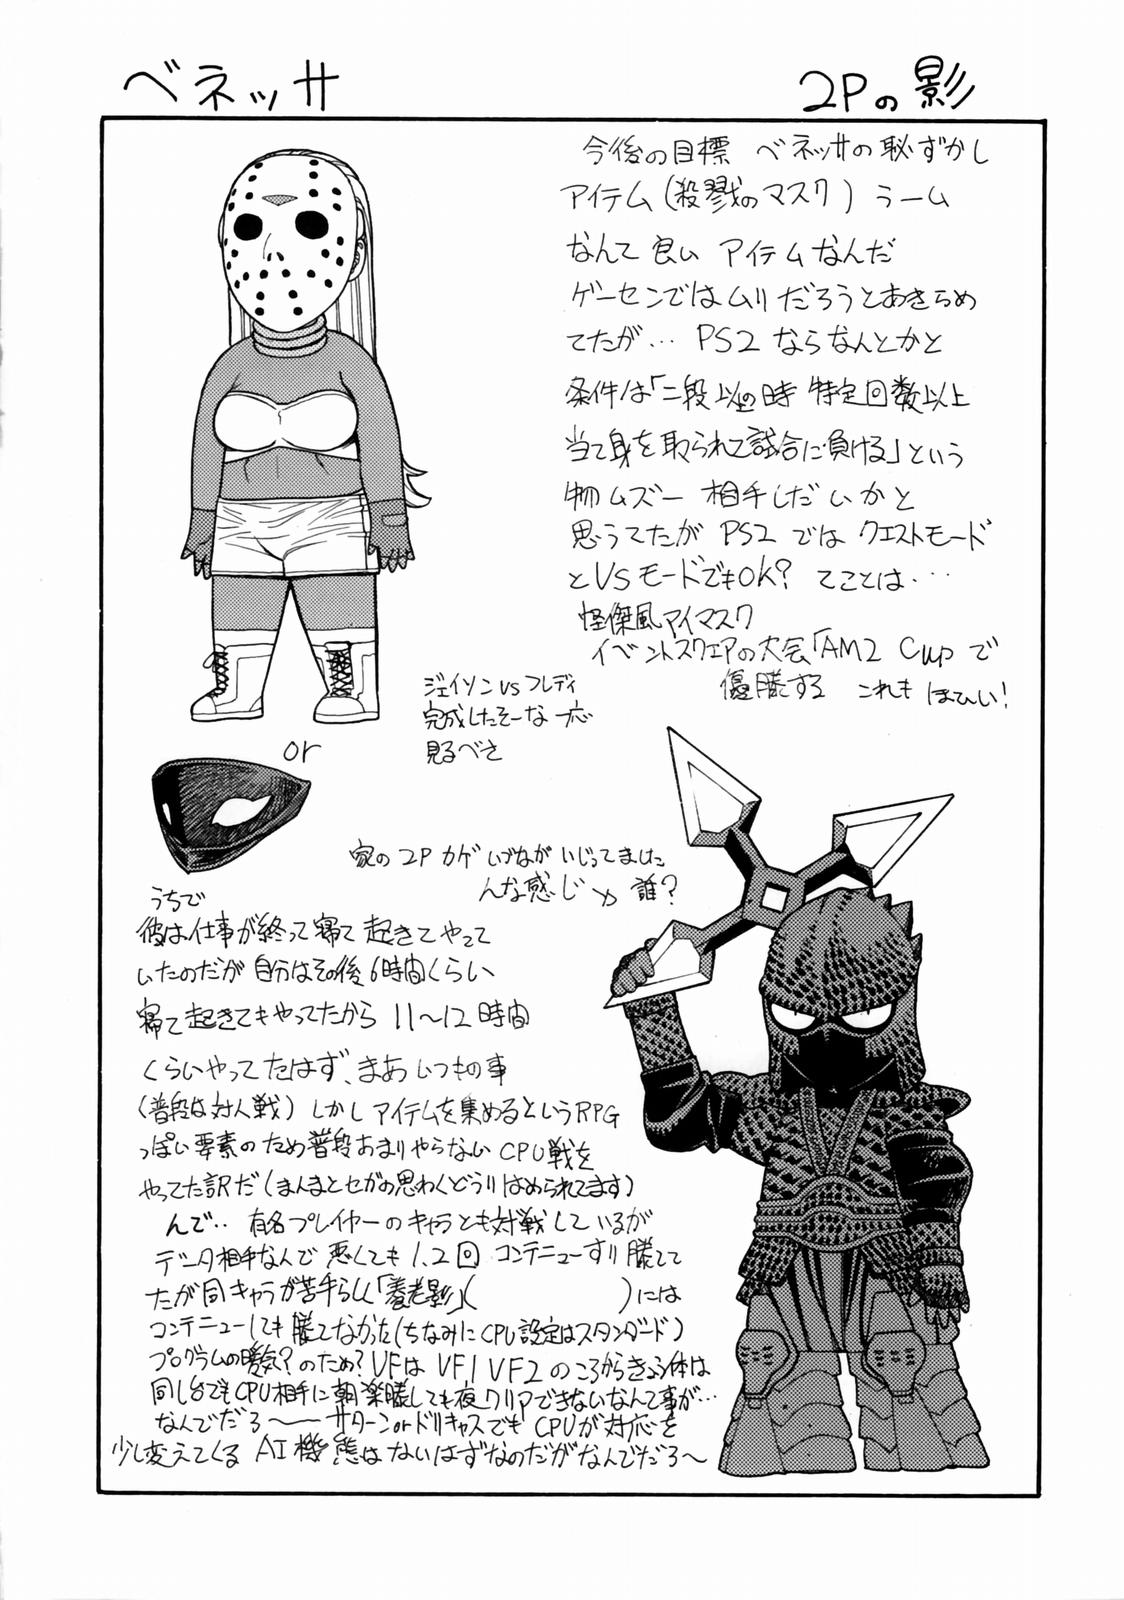 ベネッサ
2Pの影
今後の目標 ベネッサの恥ずかし
アイテム(殺戮のマスク) うーム
なんて良い アイテムなんだ
ゲーセンではムリだろうとあきらめ
てたが… PS2 ならなんとかと
条件は「二段以上の時 特定回数以上
当て身を取られて試合に負ける」という
物 ムズー 相手しだいかと
思うてたが PS2 では クエストモード
とVSモードでもOK? てことは・・・
怪傑風アイマスク
イベントスクエアの大会「AM2 Cup で
優勝する これも ほひい!
ジェイソンVSフレディ
完成したそーな 一応
見るべさ
or
家の 2P カゲ いじってました
んな感じ 誰?
うちで
彼は仕事が終って寝て 起きてやって
いたのだが 自分はその後6時間くらい
寝て起きてもやってたから 11〜12時間
くらいやってたはず、まあ いつもの事
(普段は対人戦) しかし アイテムを集めるというRPG
っぽい要素のため普段あまりやらない CPU戦を
やってた訳だ(まんまとセガの思わくどうりはめられてます)
んで・・ 有名プレイヤーのキャラとも対戦しているが
データ相手なんで 悪くても1、2回 コンテニューすりゃ勝てて
たが同キャラが苦手らしく「養老影」( )には
コンテニューしても勝てなかった(ちなみにCPU設定はスタンダード)
プログラムの暖気?のため? VFは VF1 VF2 のころからきょう体は
同じ台でもCPU相手に朝楽勝しても夜クリアできないなんて事が…
なんでだろ〜 サターンorドリキャスでも CPUが対応を
少し変えてくる AI機能はないはずなのだがなんでだろ〜